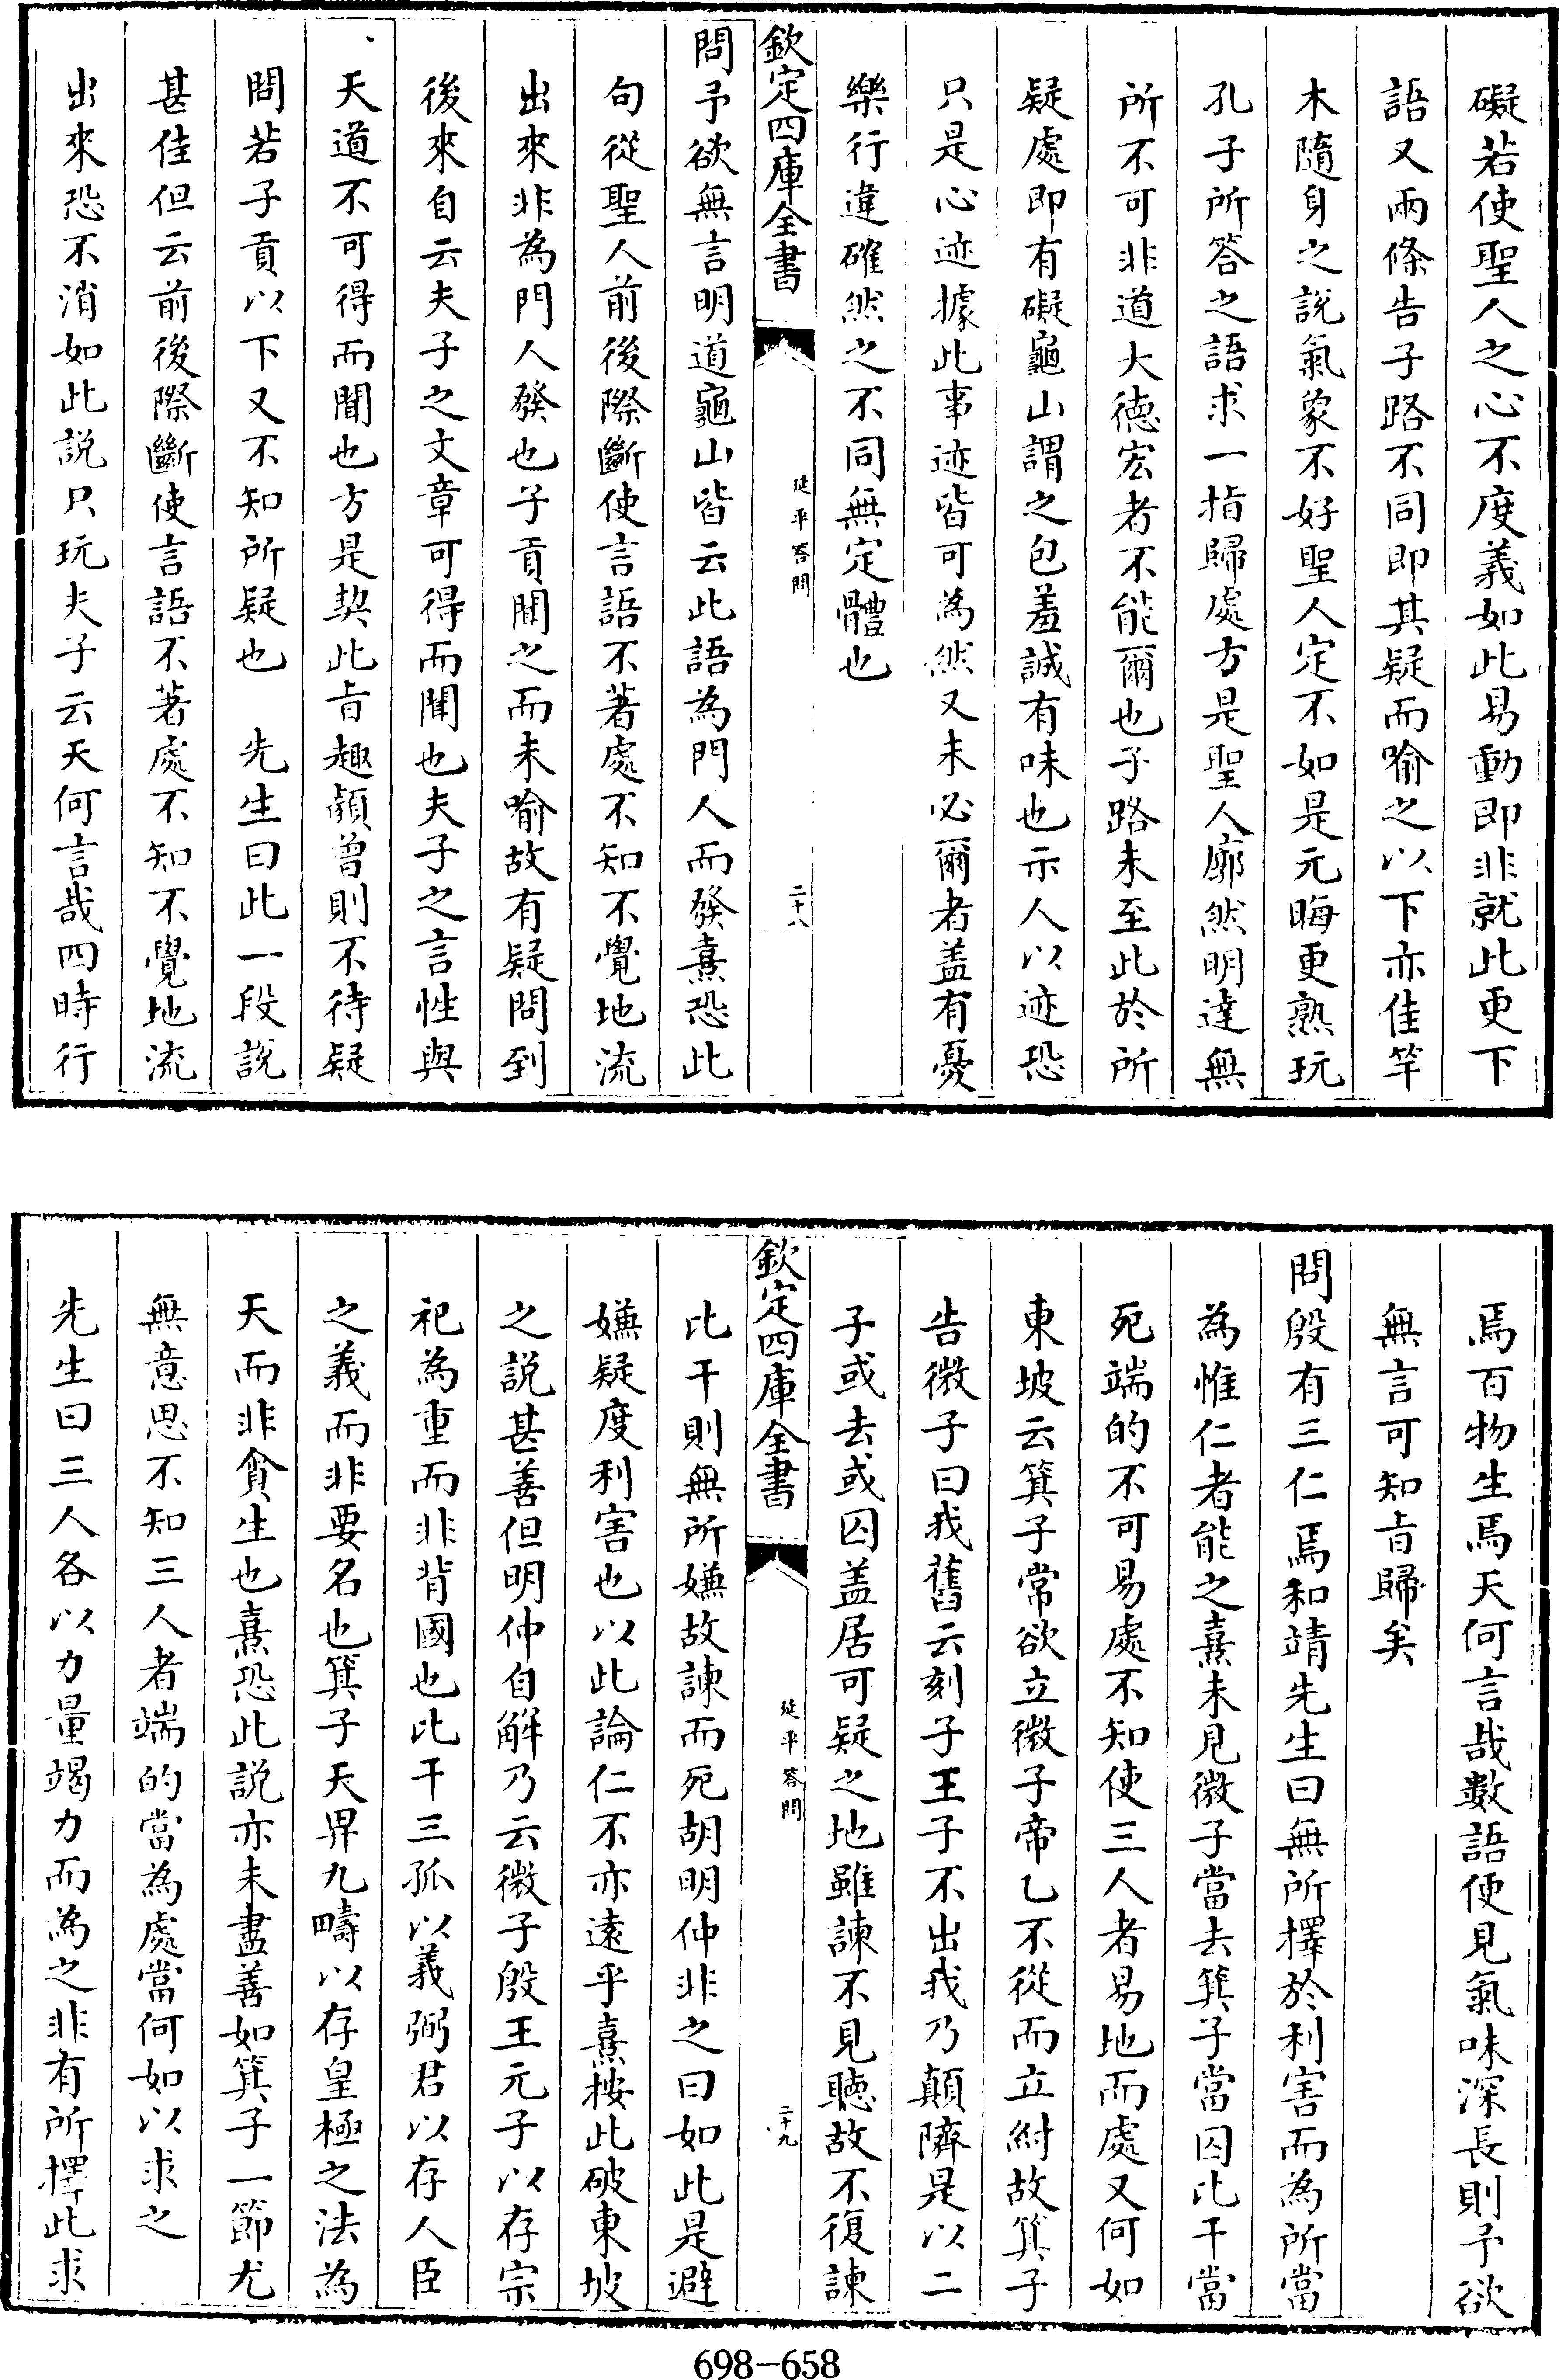 礙若使聖人之心不度義如此易動即非就此更下
語又兩條告子路不同即其疑而喻之以下亦佳竿
木隨身之說氣象不好聖人定不如是元晦更熟玩
孔子所答之語求一指歸處方是聖人廓然明達無
所不可非道大徳宏者不能爾也子路未至此於所
疑處即有礙龜山謂之包羞誠有味也示人以迹恐
只是心迹據此事迹皆可為然又未必爾者盖有憂
樂行違確然之不同無定體也
欽定四庫全書
延平答問
二十八
問予欲無言明道龜山皆云此語為門人而發熹恐此
句從聖人前後際斷使言語不著處不知不覺地流
出來非為門人發也子貢聞之而未喻故有疑問到
後來自云夫子之文章可得而聞也夫子之言性與
天道不可得而聞也方是契此㫖趣顔曾則不待疑
問若子貢以下又不知所疑也　先生曰此一段說
甚佳但云前後際斷使言語不著處不知不覺地流
出來恐不消如此説只玩夫子云天何言哉四時行
焉百物生焉天何言哉數語便見氣味深長則予欲
無言可知㫖歸矣
問殷有三仁焉和靖先生曰無所擇於利害而為所當
為惟仁者能之熹未見微子當去箕子當囚比干當
死端的不可易處不知使三人者易地而處又何如
東坡云箕子常欲立微子帝乙不從而立紂故箕子
告微子曰我舊云刻子王子不出我乃顛隮是以二
子或去或囚盖居可疑之地雖諫不見聽故不復諫
欽定四庫全書
延平答問
二十九
比干則無所嫌故諫而死胡明仲非之曰如此是避
嫌疑度利害也以此論仁不亦遠乎熹按此破東坡
之説甚善但明仲自解乃云微子殷王元子以存宗
祀為重而非背國也比干三孤以義弼君以存人臣
之義而非要名也箕子天畀九疇以存皇極之法為
天而非貪生也熹恐此説亦未盡善如箕子一節尤
無意思不知三人者端的當為處當何如以求之
先生曰三人各以力量竭力而為之非有所擇此求
698-658